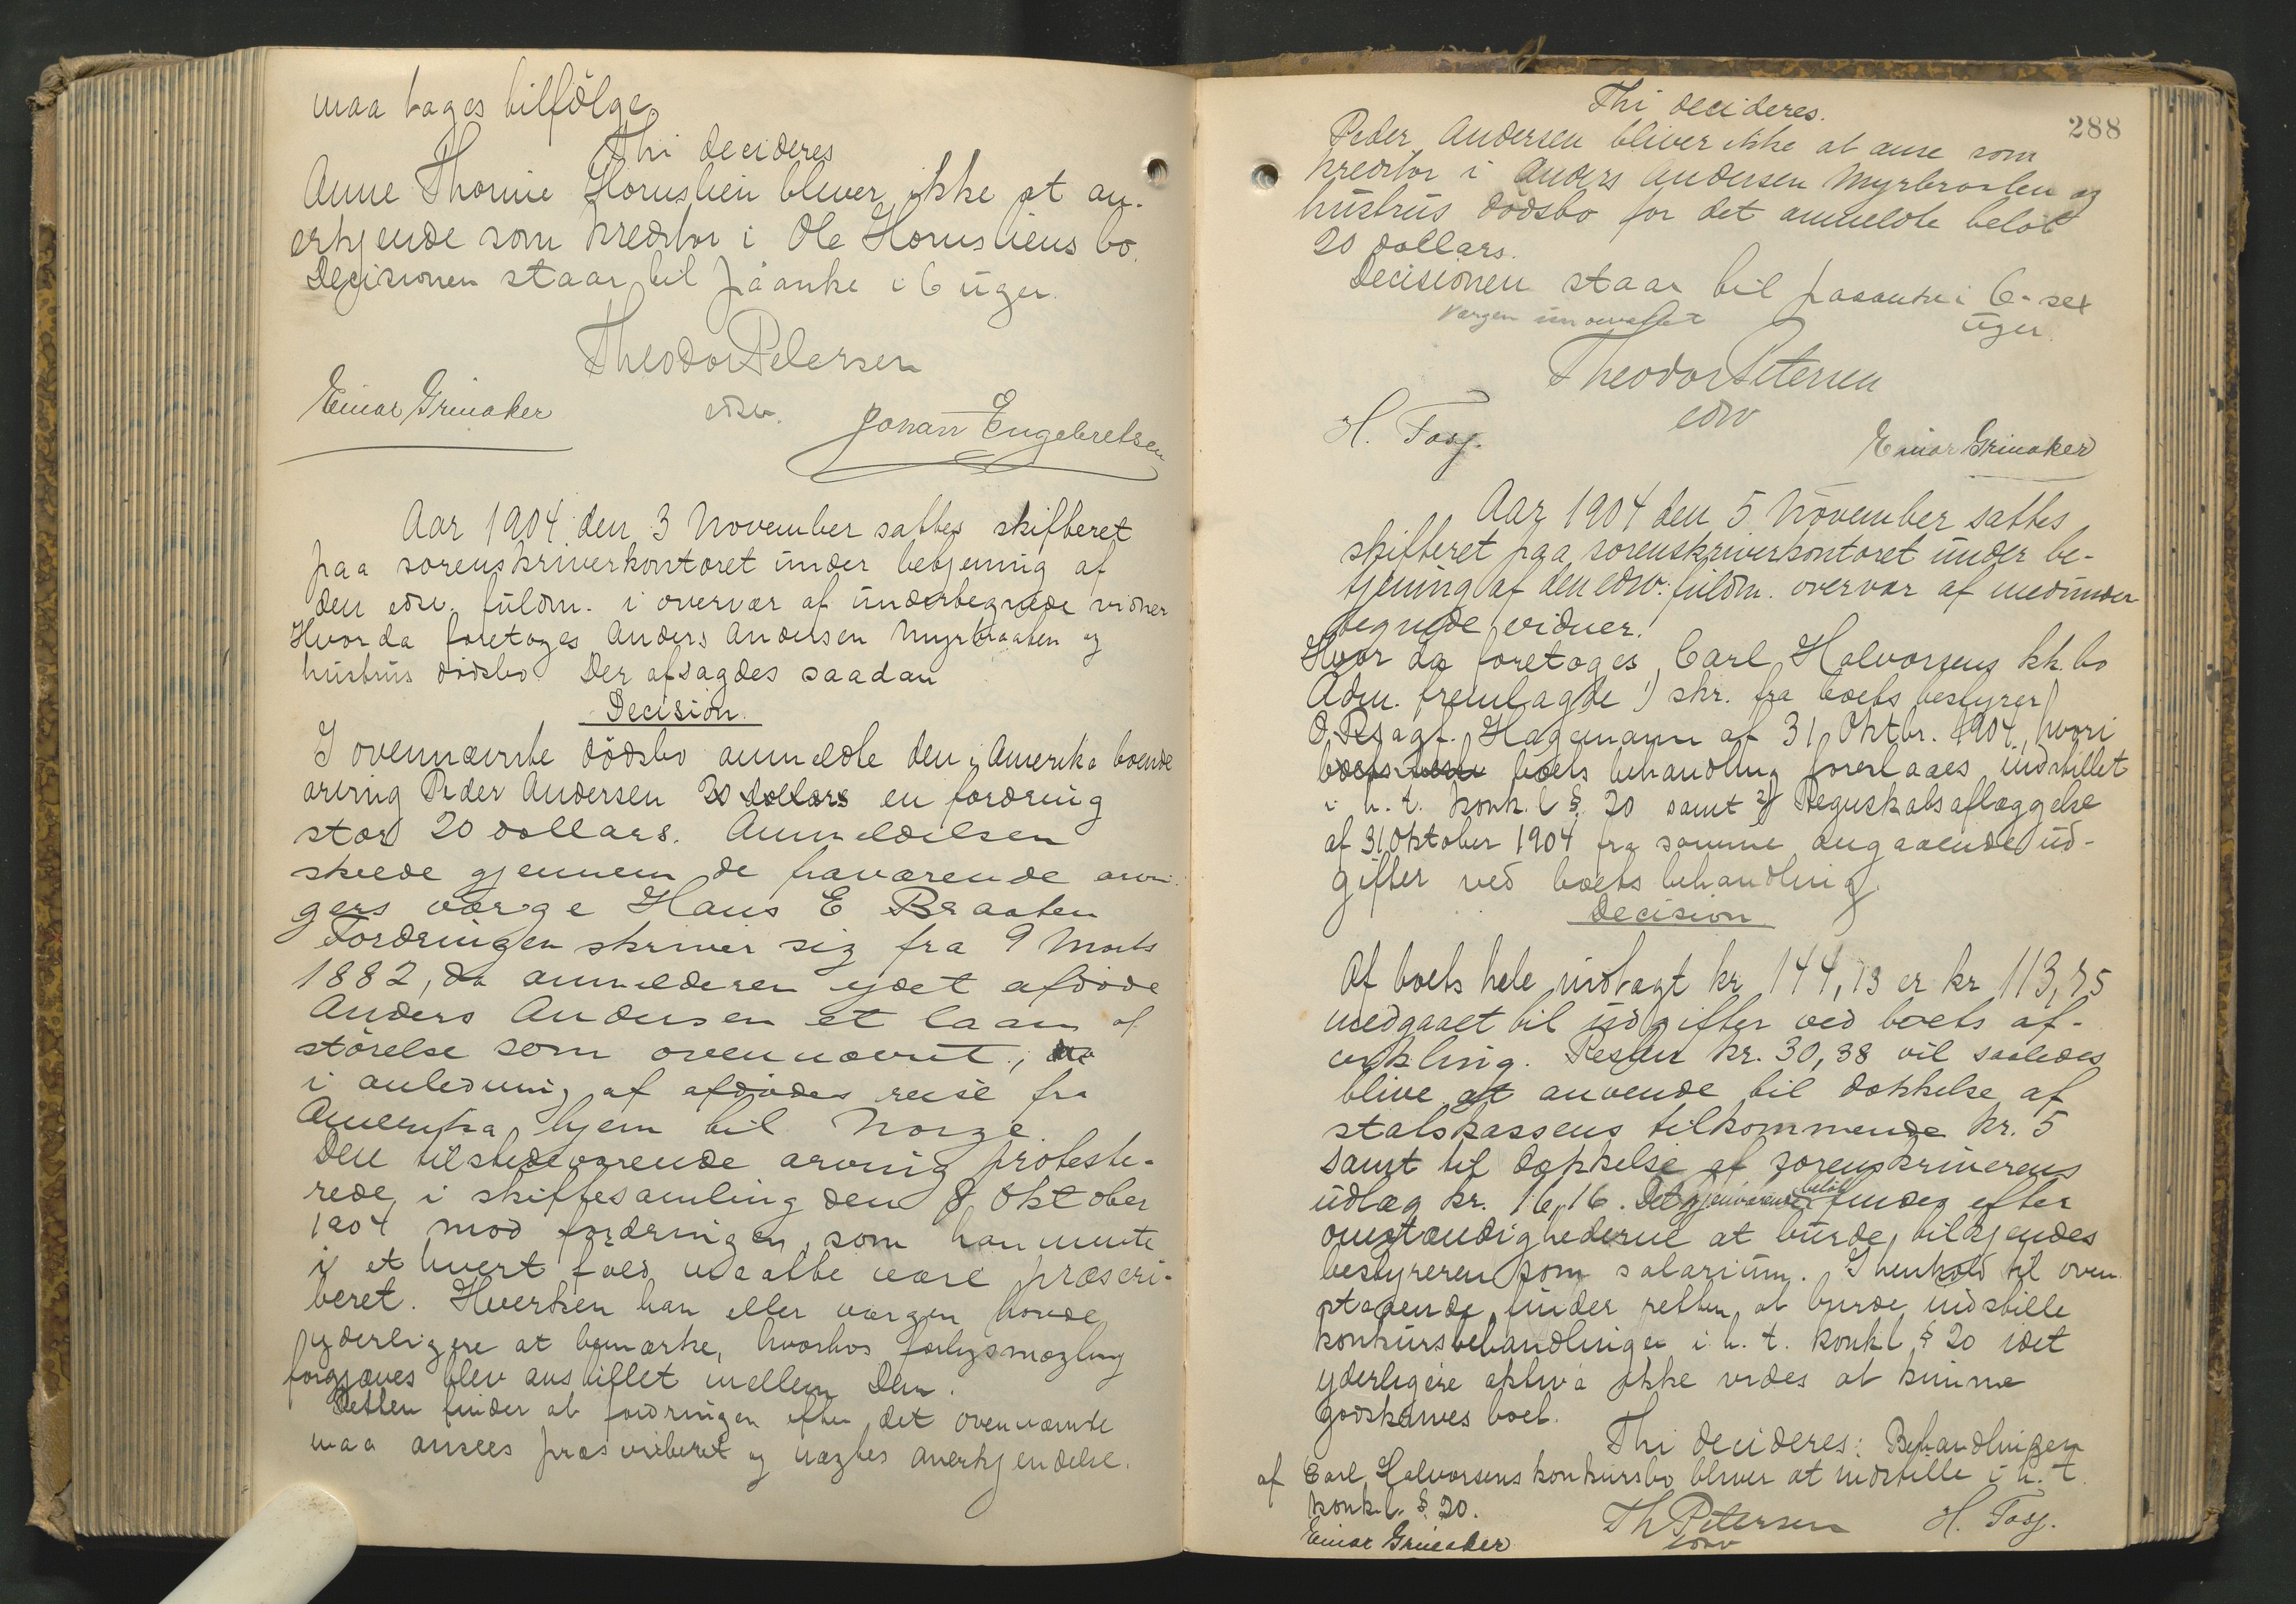 maa tages tilfölge
Thi decideres
Anne Thomine Hornslien bliver ikke at an-
erkjende som kreditor i Ole Hornsliens bo.
Decisionen staar til påanke i 6 uger.
Theodor Petersen
Einar Grinaker
edsv.
Johan Engebretsen
Aar 1904 den 3 November sattes skifteret
paa sorenskriverkontoret under betjening af
den edsv. fuldm. i overvær af underbegnede vidner
Hvor da foretoges Anders Andersen Myrbraaten og
hustrus dödsbo. Der afsagdes saadan
Decision.
I ovennævnte dödsbo anmeldte den i Amerika boende
arving Peder Andersen 20 dollars en fordring
stor 20 dollars. Anmeldelsen
skeede gjennem de fraværende arvin-
gers værge Hans E Braaten
Fordringen skriver sig fra 9 Marts
1882, da anmelderen ydet afdöde
Anders Andersen et laan af
störelse som ovennævnt,
i anledning af afdödes reise fra
Amerika hjem til Norge.
Den tilstedeværende arving proteste-
rede i skiftesamling den 8 Oktober
1904 mod fordringen, som han mente
i et hvert fald maatte være præscri-
beret. Hverken han eller værgen havde
yderligere at bemærke, hvorhos forligsmægling
forgjæves blev anstillet mellem dem.
Retten finder at fordringen efter det ovennævnte
maa ansees præscriberet og nægtes anerkjendelse.
288
Thi decideres.
Peder Andersen bliver ikke at anse som
kreditor i Anders Andersen Myrbraaten og
hustrus dödsbo for det anmeldte belöb
20 dollars.
Decisionen staar til paaanke i 6-sex
uger.
Værgen
Theodor Petersen
edsv
H. Fosj.
Einar Grinaker
Aar 1904 den 5 November sattes
skifteret paa sorenskriverkontoret under be-
tjening af den edsv: fuldm. overvær af medunder
tegnede vidner.
Hvor da foretoges Carl Halvorsens kk. bo
Adm. fremlagde 1) skr. fra boets bestyrer
O.Rsagf. Hagemann af 31 Oktbr. 1904, hvori
boets best boets behandling foreslaaes indstillet
i h. t. konk. l § 20 samt 2) Regnskabsaflæggelse
af 31 Oktober 1904 fra samme angaaende ud-
gifter ved boets behandling.
Decision
Af boets hele indtægt kr 144,13 er kr 113,75
medgaaet til udgifter ved boets af-
vikling. Resten kr. 30,38 vil saaledes
blive at anvende til dækkelse af
statskassens tilkommende kr. 5
samt til dækkelse af sorenskriverens
udlæg kr. 16,16. Det gjenværende belöb findes efter
omstændighederne at burde tilkjendes
bestyreren som salarium. I henhold til oven
staaende finder retten at burde indstille
konkursbehandlingen i h. t. konkl § 20 idet
yderligere aktiva ikke vides at kunne
godskrives boet.
Thi decideres: Behandlingen
af Carl Halvorsens konkursbo bliver at indstille i h. t.
konk.l. § 20.
Th Petersen
H. Fosj.
Einar Grinaker
edsv